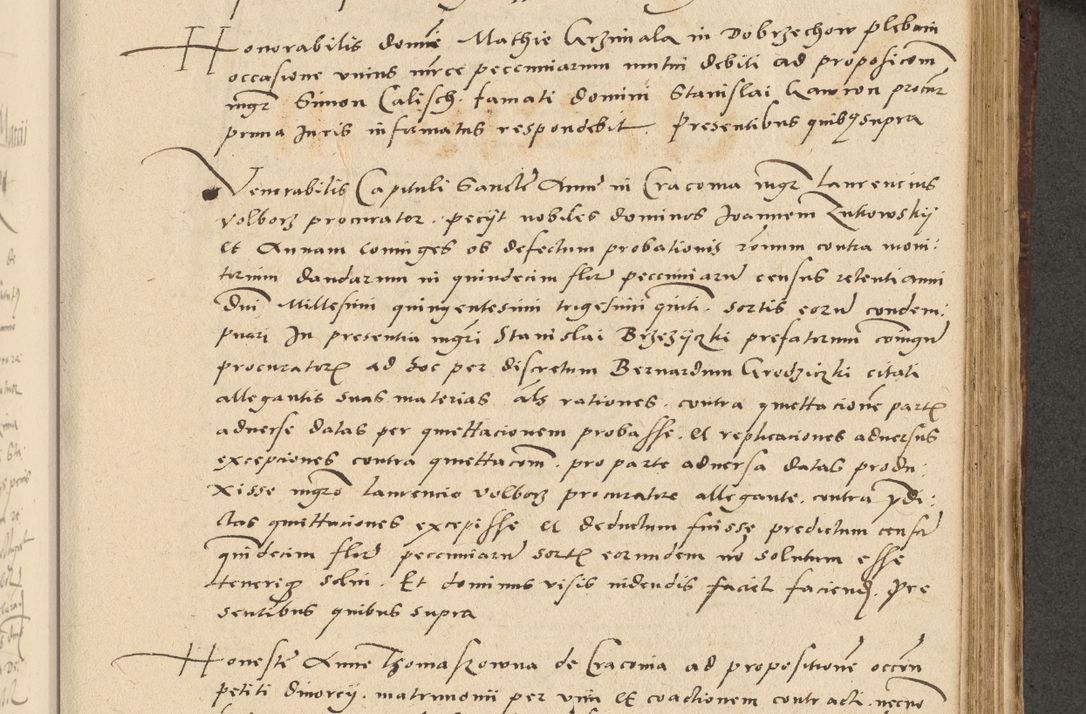 Honorabilis domini Mathie Grzimala in Dobrzechow plebani
occasione unius mrce pecuniarum mutui debiti ad proposicom
mgr Simon Calisch. famati domini Stanislai Gawron procur
prima Juris infirmatus respondebit. Presentibus quibus supra
Venerabilis Capituli Sancte Anne in Cracovia mgr Laurencius
Volborz procurator. peciit nobiles dominos Joannem Zukowskij
et Annam coniuges ob defectum probationis contra moni:
torium dandarum in quindecim flor pecuniaru census retenti anni
Dni Millesimi quingentesimi trigesimi quinti. sortis eoru condem:
pnari In presentia mgri Stanislai Brzezijczki prefatorum coniugu
procurator ad hoc per discretum Bernardum Grodziczki citati
allegantis suas materias als rationes. contra quettacione part
adverse datas per quettacionem probasse. et replicaciones adversus
excepciones contra quettacom. pro parte adversa datas produ:
xisse mgro Laurencio Volborz procuratore allegante. contra pdi:
ctas quettaciones excepisse et deductum fuisse predictum
quindecim flor pecuniaru sort eorundem no solutum esse
tenerique solvi. Et dominus visis videndis faciet faciend. Pre
sentibus quibus supra
Honeste Anne Thomaszkowna de Cracovia ad propositione
petiti divorcij. matrimonii per vim et coactionem contracti. necno